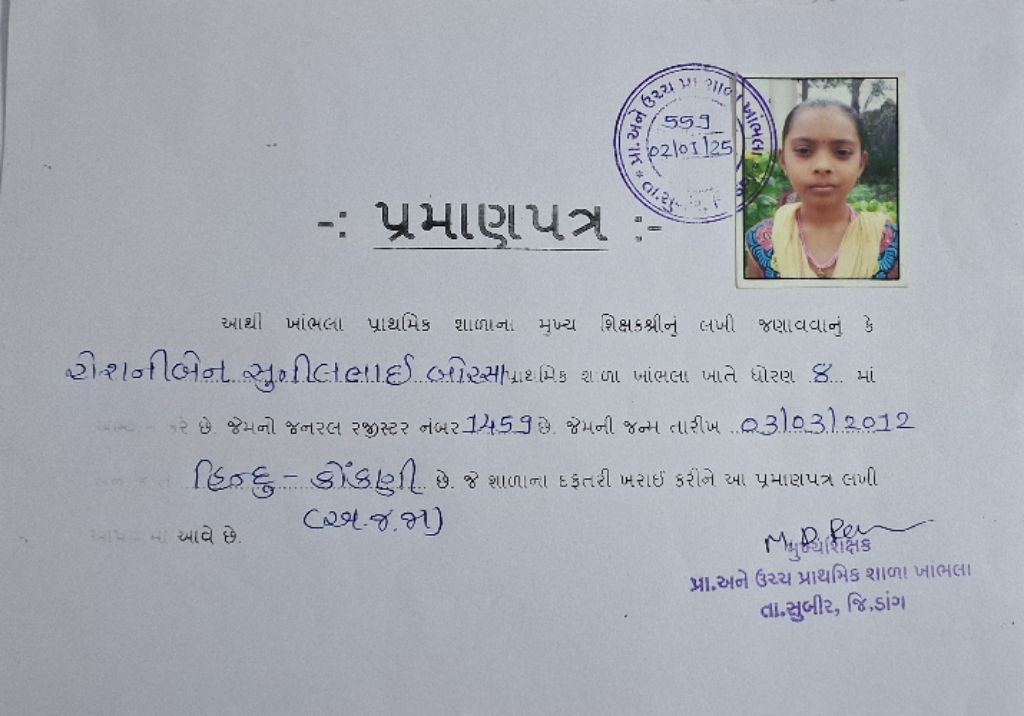 પ્રા.અને ઉચ્ચ પ્રા શાળા ખાંભલા
559
02/01/25
તા.સુ
-: પ્રમાણપત્ર :-
આથી ખાંભલા પ્રાથમિક શાળાના મુખ્ય શિક્ષકશ્રીનું લખી જણાવવાનું કે
રોશનીબેન સુનીલભાઈ બોરસા પ્રાથમિક શાળા ખાંભલા ખાતે ધોરણ ૪ માં
કરે છે. જેમનો જનરલ રજીસ્ટર નંબર 1459 છે. જેમની જન્મ તારીખ 03/03/2012
હિન્દુ - કોંકણી છે. જે શાળાના દફતરી ખરાઈ કરીને આ પ્રમાણપત્ર લખી
(અ.જ.જા)
આપવામાં આવે છે.
મુખ્યશિક્ષક
પ્રા.અને ઉચ્ચ પ્રાથમિક શાળા ખાંભલા
તા.સુબીર, જિ.ડાંગ